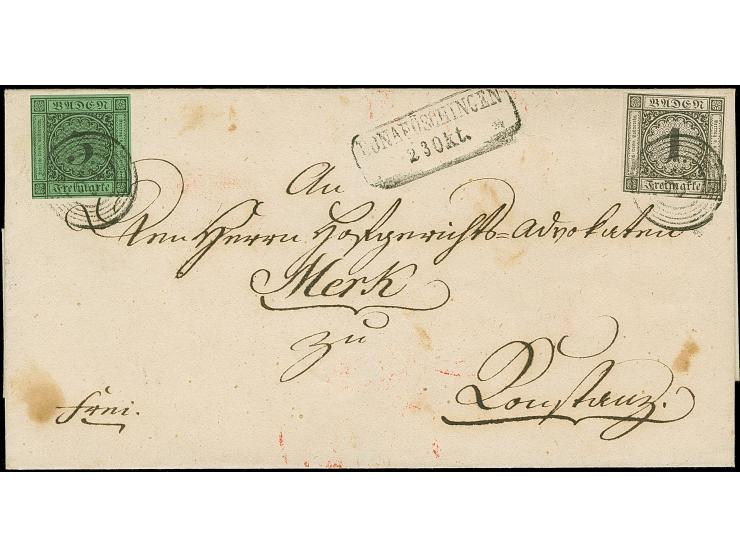 BADEN
3
Freimarke
DONAUÖSCHINGEN
23 Okt.
BADEN
1.
Freimarke
An
Den Herrn Hofgerichts=Advokaten
Merk
zu
Constanz.
frei.